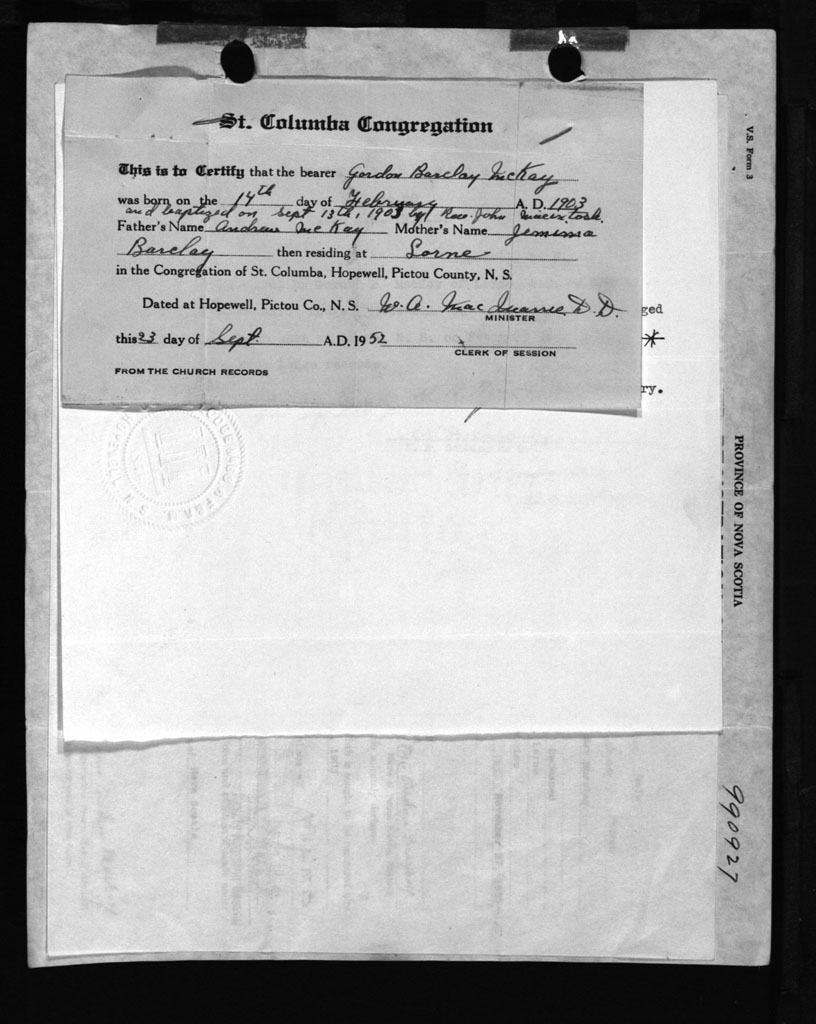 St. Columba Congregation
This is to Certify that the bearer Gordon Barclay McKay
was born on the 14th day of February A. D. 1903
and baptized on Sept 13th, 1903 by Rev. John Macintosh.
Father's Name Andrew McKay Mother's Name Jemima
Barclay then residing at Lorne
in the Congregation of St. Columba, Hopewell, Pictou County, N. S.
Dated at Hopewell, Pictou Co., N. S. W. A. MacQuarrie, D. D.
MINISTER
this 23 day of Sept. A.D. 1952
CLERK OF SESSION
FROM THE CHURCH RECORDS
ged
ry.
V.S. Form 3
PROVINCE OF NOVA SCOTIA
990927